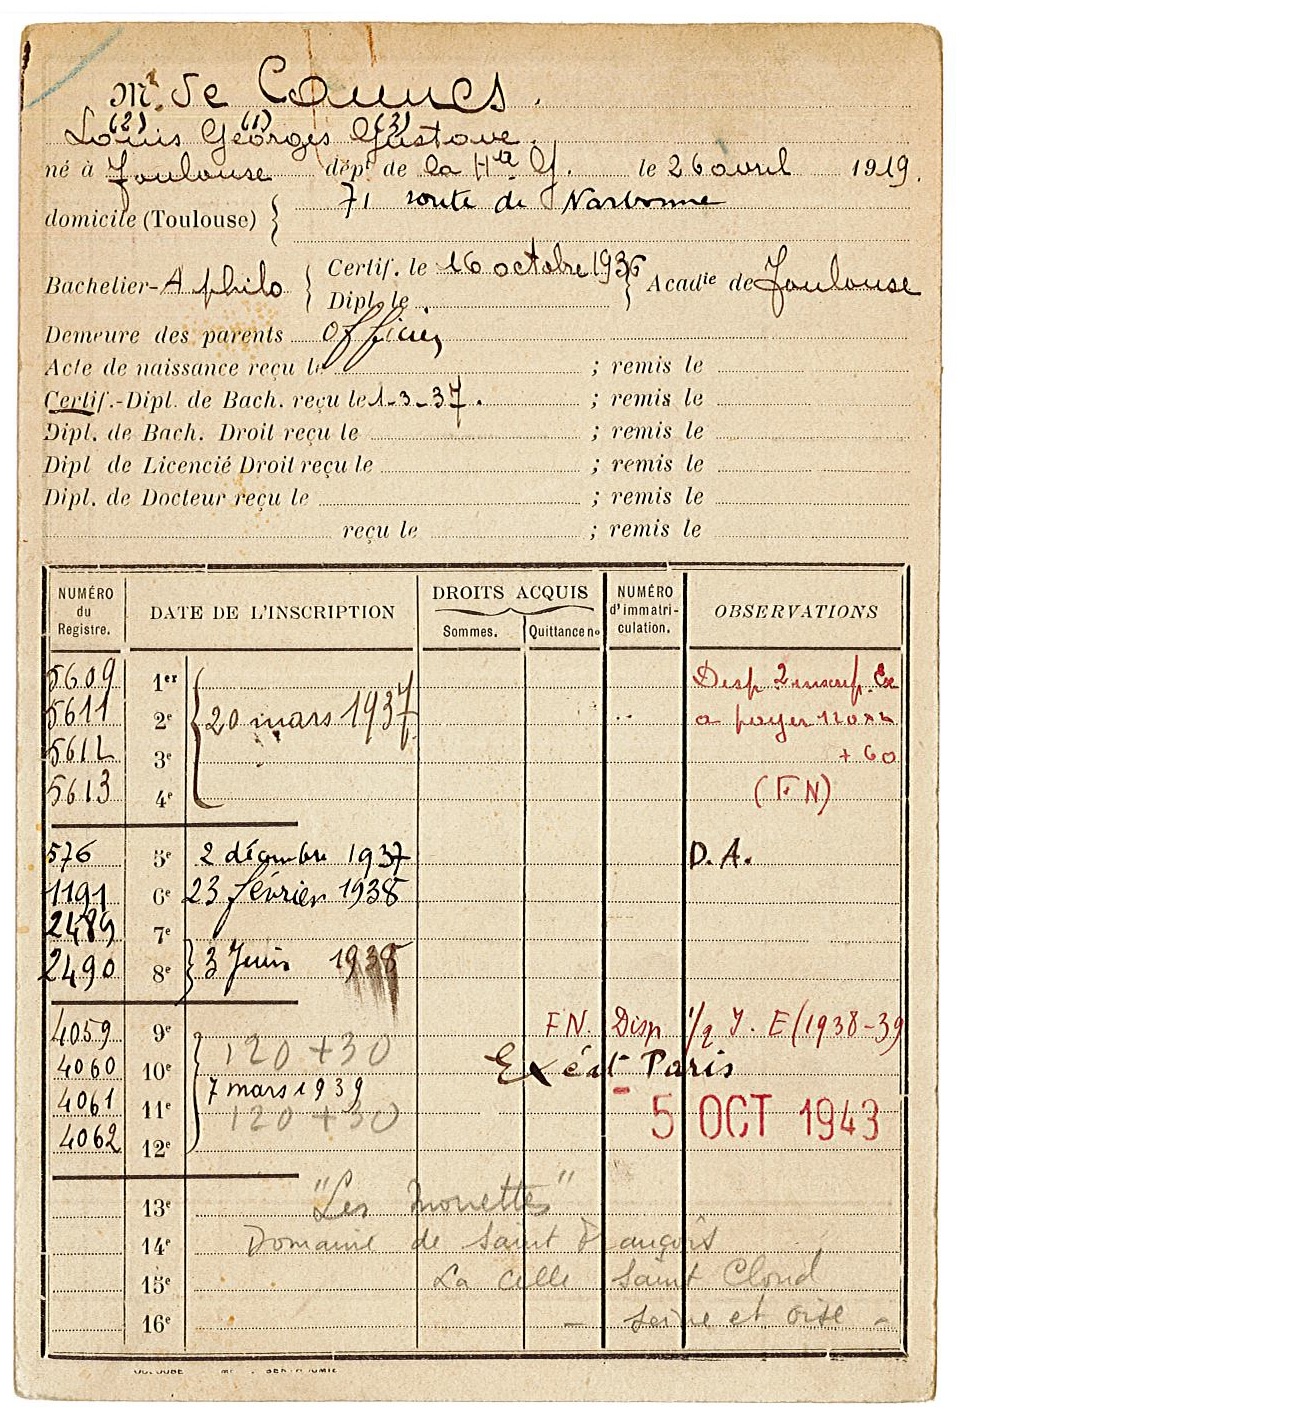 Mr. de Caunes.
(2) (1) (3)
Louis Georges Gustave.
né à Toulouse dépt de la Hte G. le 26 avril 1919.
71 route de Narbonne
domicile (Toulouse)
Bachelier- A philo Certif. le 16 octobre 1936 Acadie de Toulouse
Dipl. le
Demeure des parents officier
Acte de naissance reçu le ; remis le
Certif.-Dipl. de Bach. reçu le 1-3-37. ; remis le
Dipl. de Bach. Droit reçu le ; remis le
Dipl de Licencié Droit reçu le ; remis le
Dipl. de Docteur reçu le ; remis le
reçu le ; remis le
NUMÉRO du Registre. DATE DE L'INSCRIPTION DROITS ACQUIS Sommes. Quittance no NUMÉRO d'immatriculation. OBSERVATIONS
5609 1er Disp 2 inscrip. Ex
5611 2e 20 mars 1937 a payer 120
5612 3e + 60
5613 4e (F N)
576 5e 2 décembre 1937 D. A.
1191 6e 23 février 1938
2489 7e
2490 8e 3 Juin 1938
4059 9e FN. Disp 1/2 I. E (1938-39
120 + 30
4060 10e Exéat Paris
7 mars 1939
4061 11e 120 + 30 - 5 OCT 1943
4062 12e
13e "Les Mouettes"
14e Domaine de Saint François
15e La Celle Saint Cloud
16e - Seine et Oise -